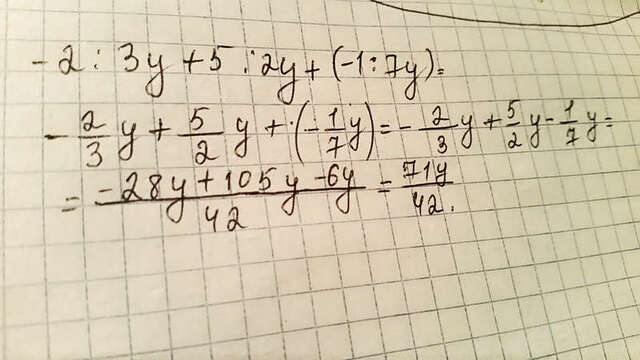 - 2 : 3y + 5 : 2y + (-1 : 7y) =
- 2/3 y + 5/2 y + (- 1/7 y) = - 2/3 y + 5/2 y - 1/7 y =
= -28y + 105y - 6y / 42 = 71y / 42.